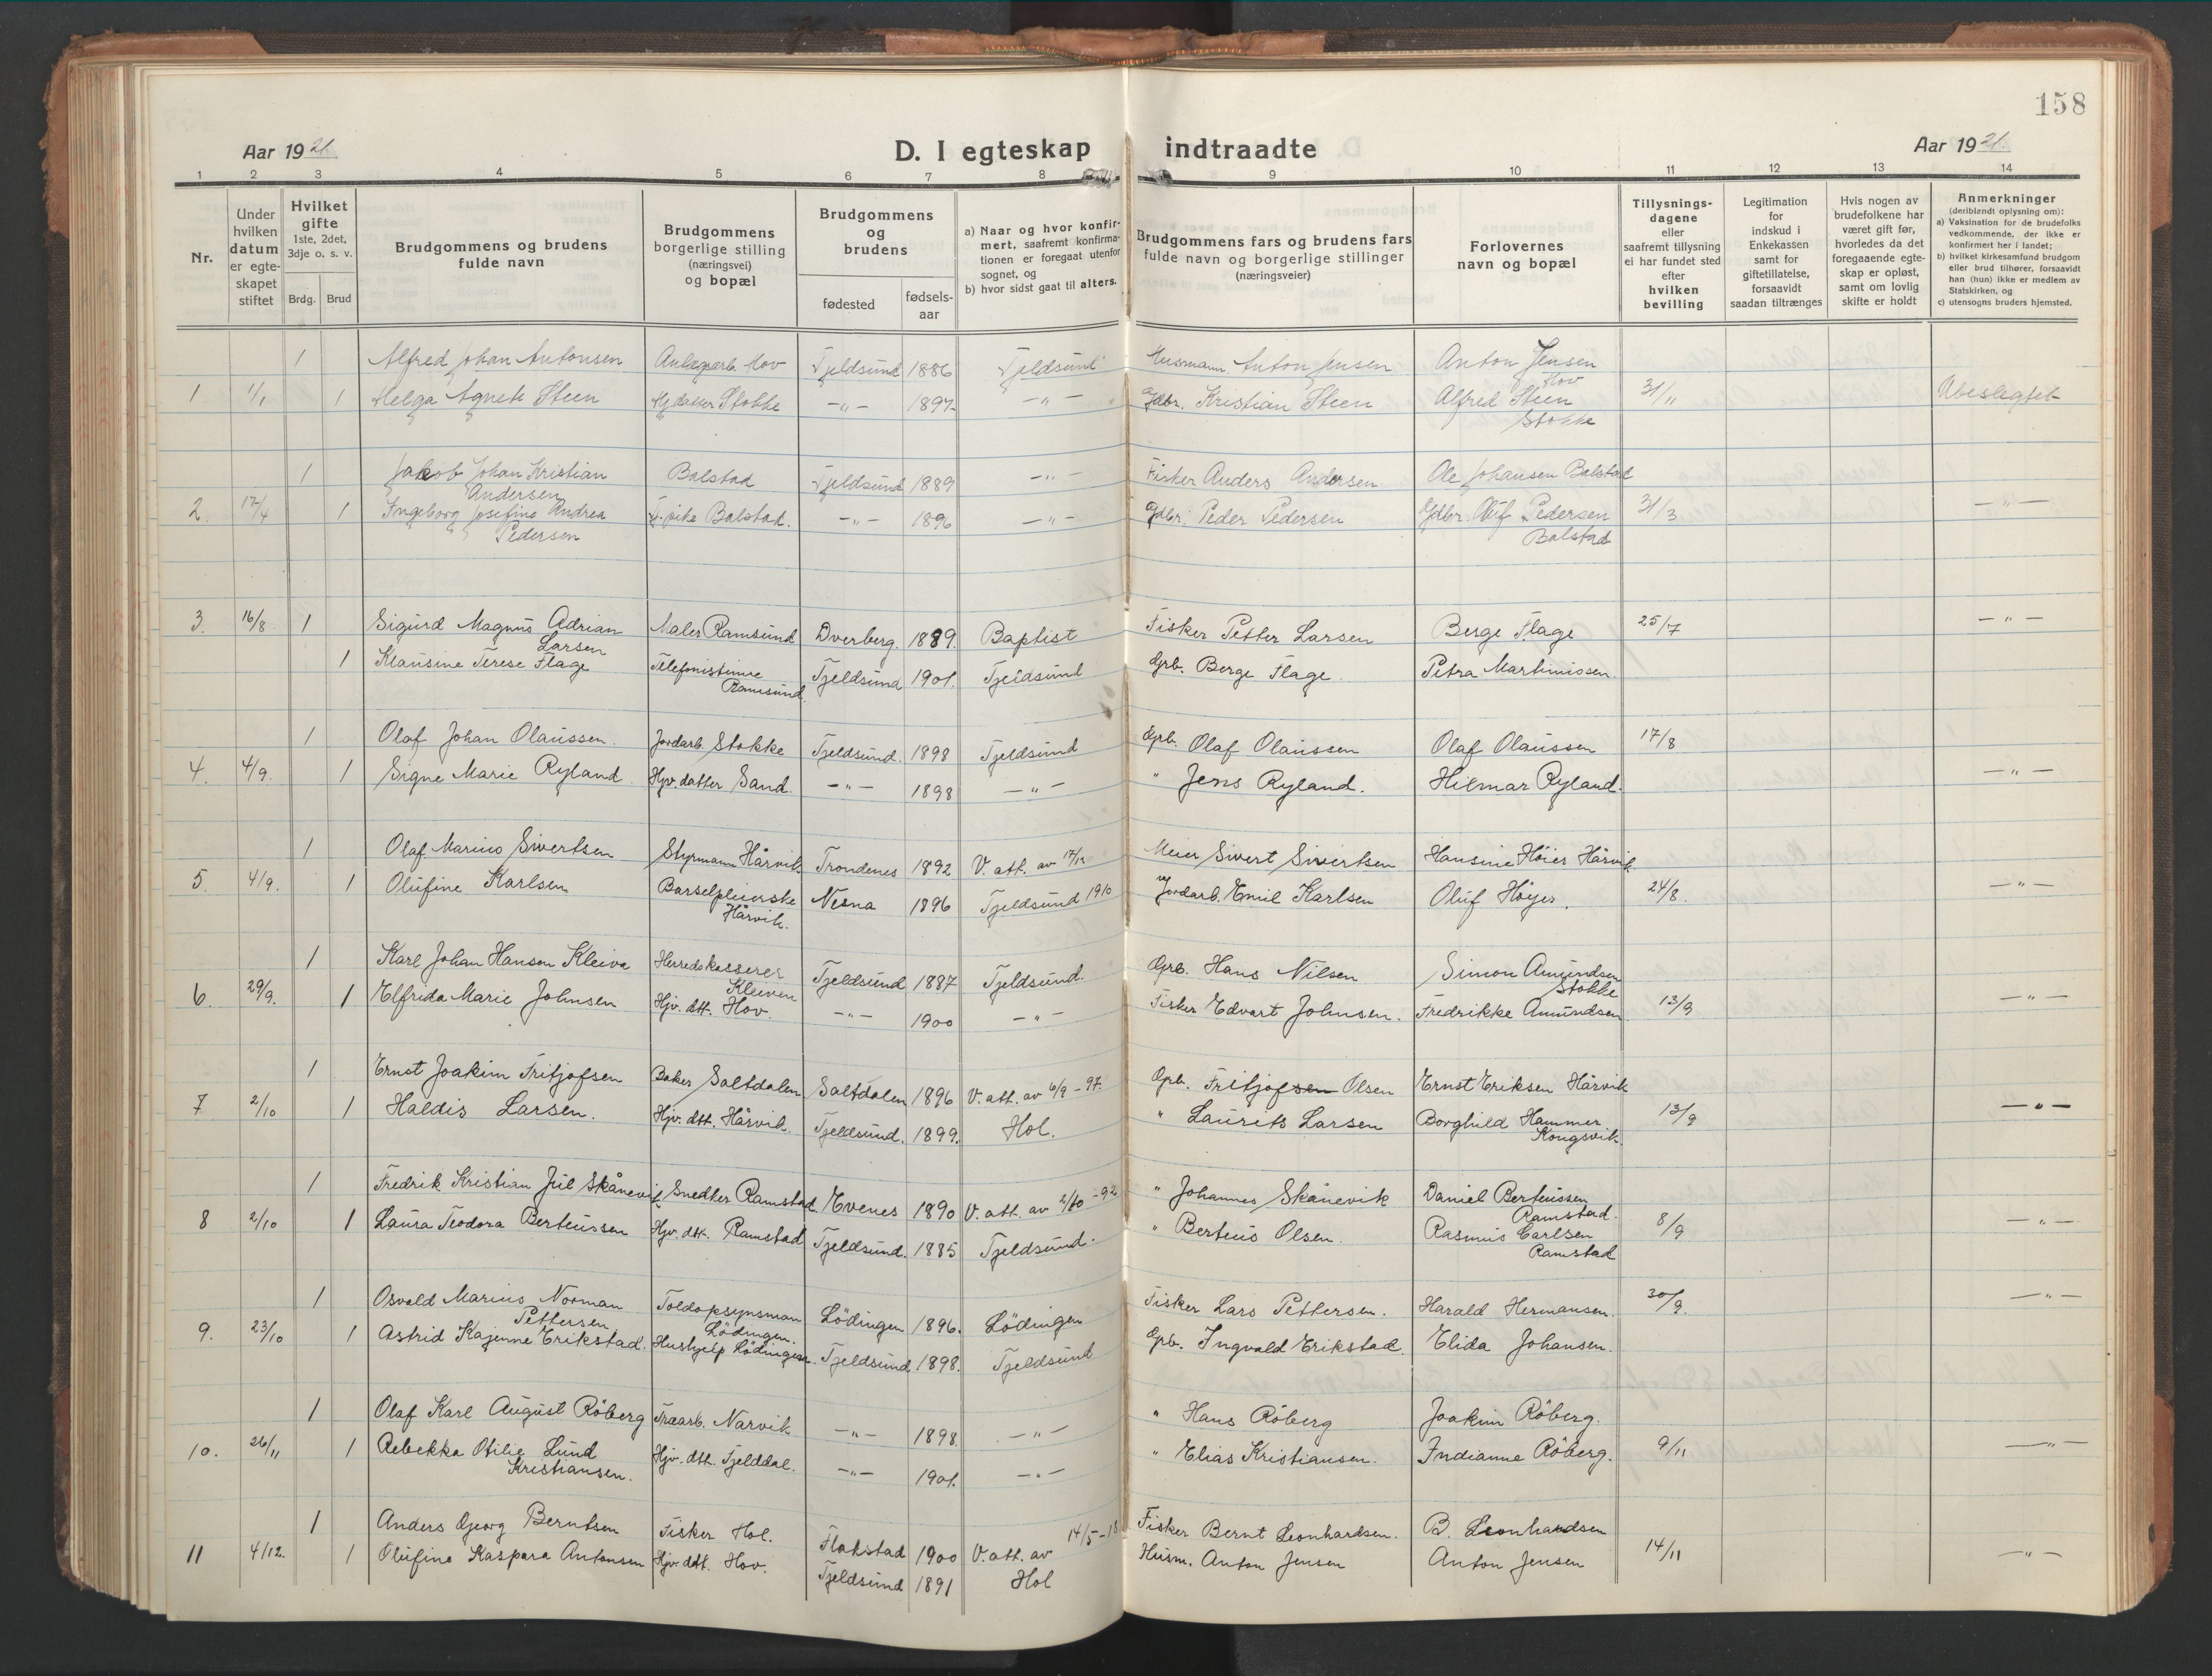 158
Aar 1921.
D. I egteskap indtraadte
Aar 1921.
1 2 3 4 5 6 7 8 9 10 11 12 13 14
Nr.
Under hvilken datum er egteskapet stiftet
Hvilket gifte 1ste, 2det, 3dje o. s. v.
Brdg. Brud
Brudgommens og brudens fulde navn
Brudgommens borgerlige stilling (næringsvei) og bopæl
Brudgommens og brudens
fødested
fødsels-aar
a) Naar og hvor konfirmert, saafremt konfirmationen er foregaat utenfor sognet, og
b) hvor sidst gaat til alters.
Brudgommens fars og brudens fars fulde navn og borgerlige stillinger (næringsveier)
Forlovernes navn og bopæl
Tillysnings-dagene eller saafremt tillysning ei har fundet sted efter hvilken bevilling
Legitimation for indskud i Enkekassen samt for giftetillatelse, forsaavidt saadan tiltrænges
Hvis nogen av brudefolkene har været gift før, hvorledes da det foregaaende egteskap er opløst, samt om lovlig skifte er holdt
Anmerkninger
(deriblandt oplysning om):
a) Vaksination for de brudefolks vedkommende, der ikke er konfirmert her i landet;
b) hvilket kirkesamfund brudgom eller brud tilhører, forsaavidt han (hun) ikke er medlem av Statskirken, og
c) utensogns bruders hjemsted.
1 Alfred Johan Antonsen Anlegsarb. Hov Tjeldsund 1886 Tjeldsund Husmann Anton Jensen Anton Jensen Hov
1 1/1 1 Helga Agnete Steen Stokke —"— 1897 —"— Gdbr. Kristian Steen Alfred Steen Stokke 31/11 Ubeslegtet
1 Jakob Johan Kristian Andersen Balstad Tjeldsund 1889 —"— Fisker Anders Andersen Ole Johansen Balstad
2. 17/4 1 Ingeborg Josefine Andrea Pedersen Balstad. —"— 1896 —"— Gdbr. Peder Pedersen Gdbr. Oluf Pedersen Balstad 31/3 —"—
3. 16/8 1 Sigurd Magnus Adrian Larsen Maler Ramsund Dverberg. 1889. Baptist Fisker Petter Larsen Berge Flage 25/7 —"—
1 Klausine Terese Flage Telefonistinne Ramsund. Tjeldsund 1901. Tjeldsund Grb. Berge Flage. Petra Martinissen.
1 Olaf Johan Olaussen. Jordarb. Stokke Tjeldsund. 1898 Tjeldsund Grb. Olaf Olaussen Olaf Olaussen 17/8
4. 4/9. 1 Signe Marie Ryland Hjv. datter Sand. —"— 1898 —"— " Jens Ryland. Hilmar Ryland. —"—
1 Olaf Marius Sivertsen Styrmann Hårvik Trondenes 1892 V. att. av 17/12 Meier Sivert Sivertsen Hansine Höier Hårvik
5. 4/9. 1 Olufine Karlsen Barselpleierske Hårvik. Nesna 1896 Tjeldsund 1910 Jordarb. Emil Karlsen Oluf Höyer. 24/8. —"—
1 Karl Johan Hansen Kleiva Herredskasserer Kleiven Tjeldsund 1887 Tjeldsund. Grb. Hans Nilsen Simon Amundsen Stokke
6. 29/9. 1 Elfrida Marie Johnsen Hjv. dtt. Hov. —"— 1900 —"— Fisker Edvart Johnsen. Fredrikke Amundsen 13/9 —"—
1 Ernst Joakim Fritjofsen Baker Saltdalen Saltdalen 1896 V. att. av 6/9 - 97. Grb. Fritjofsen Olsen Ernst Eriksen Hårvik
7 2/10 1 Haldis Larsen. Hjv. dtt. Hårvik. Tjeldsund. 1899. Hol. " Laurits Larsen Borghild Hammer Kongsvik. 13/9 —"—
1 Fredrik Kristian Jul Skånevik Snedker Ramstad Evenes 1890 V. att. av 2/10 - 92 " Johannes Skånevik Daniel Berteussen Ramstad.
8 2/10 1 Laura Teodora Berteussen Hjv. dtt. Ramstad Tjeldsund. 1885 Tjeldsund. " Berteus Olsen. Rasmus Carlsen Ramstad 8/9 —"—
1 Osvald Marius Norman Pettersen Toldopsynsman Lödingen. Lödingen 1896. Lödingen Fisker Lars Pettersen. Harald Hermansen. 30/9. —"—
9. 23/10 1 Astrid Kajenne Erikstad. Hushjelp Lödingen. Tjeldsund 1898. Tjeldsund Grb. Ingvald Erikstad. Elida Johansen.
1 Olaf Karl August Röberg Træarb. Narvik —"— 1898. —"— " Hans Röberg Joakim Röberg.
10. 26/11 1 Rebekka Otilie Lund Kristiansen. Hjv. dtt. Tjelddal. —"— 1901. —"— " Elias Kristiansen. Indianne Röberg. 9/11 —"—
1 Anders Georg Berntsen Fisker Hol. Flakstad 1900 V. att. av 14/5 - 18 Fisker Bernt Leonhardsen. B. Leonhardsen
11 4/12. 1 Olufine Kaspara Antonsen Hjv. dtt. Hov. Tjeldsund 1891 Hol Husm. Anton Jensen Anton Jensen 14/11 —"—